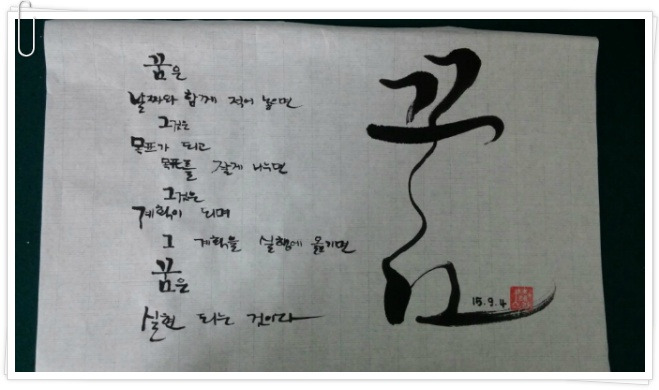 꿈은
날짜와 함께 적어 놓으면
그것은
목표가 되고
목표를 잘게 나누면
그것은
계획이 되며
그 계획을 실행에 옮기면
꿈은
실현 되는 것이다
꿈
15.9.4